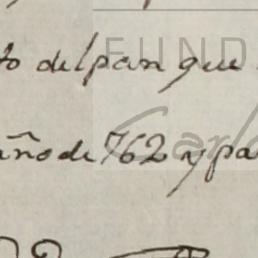 to del pan que
año de 762 y pa
FUND
Carlo